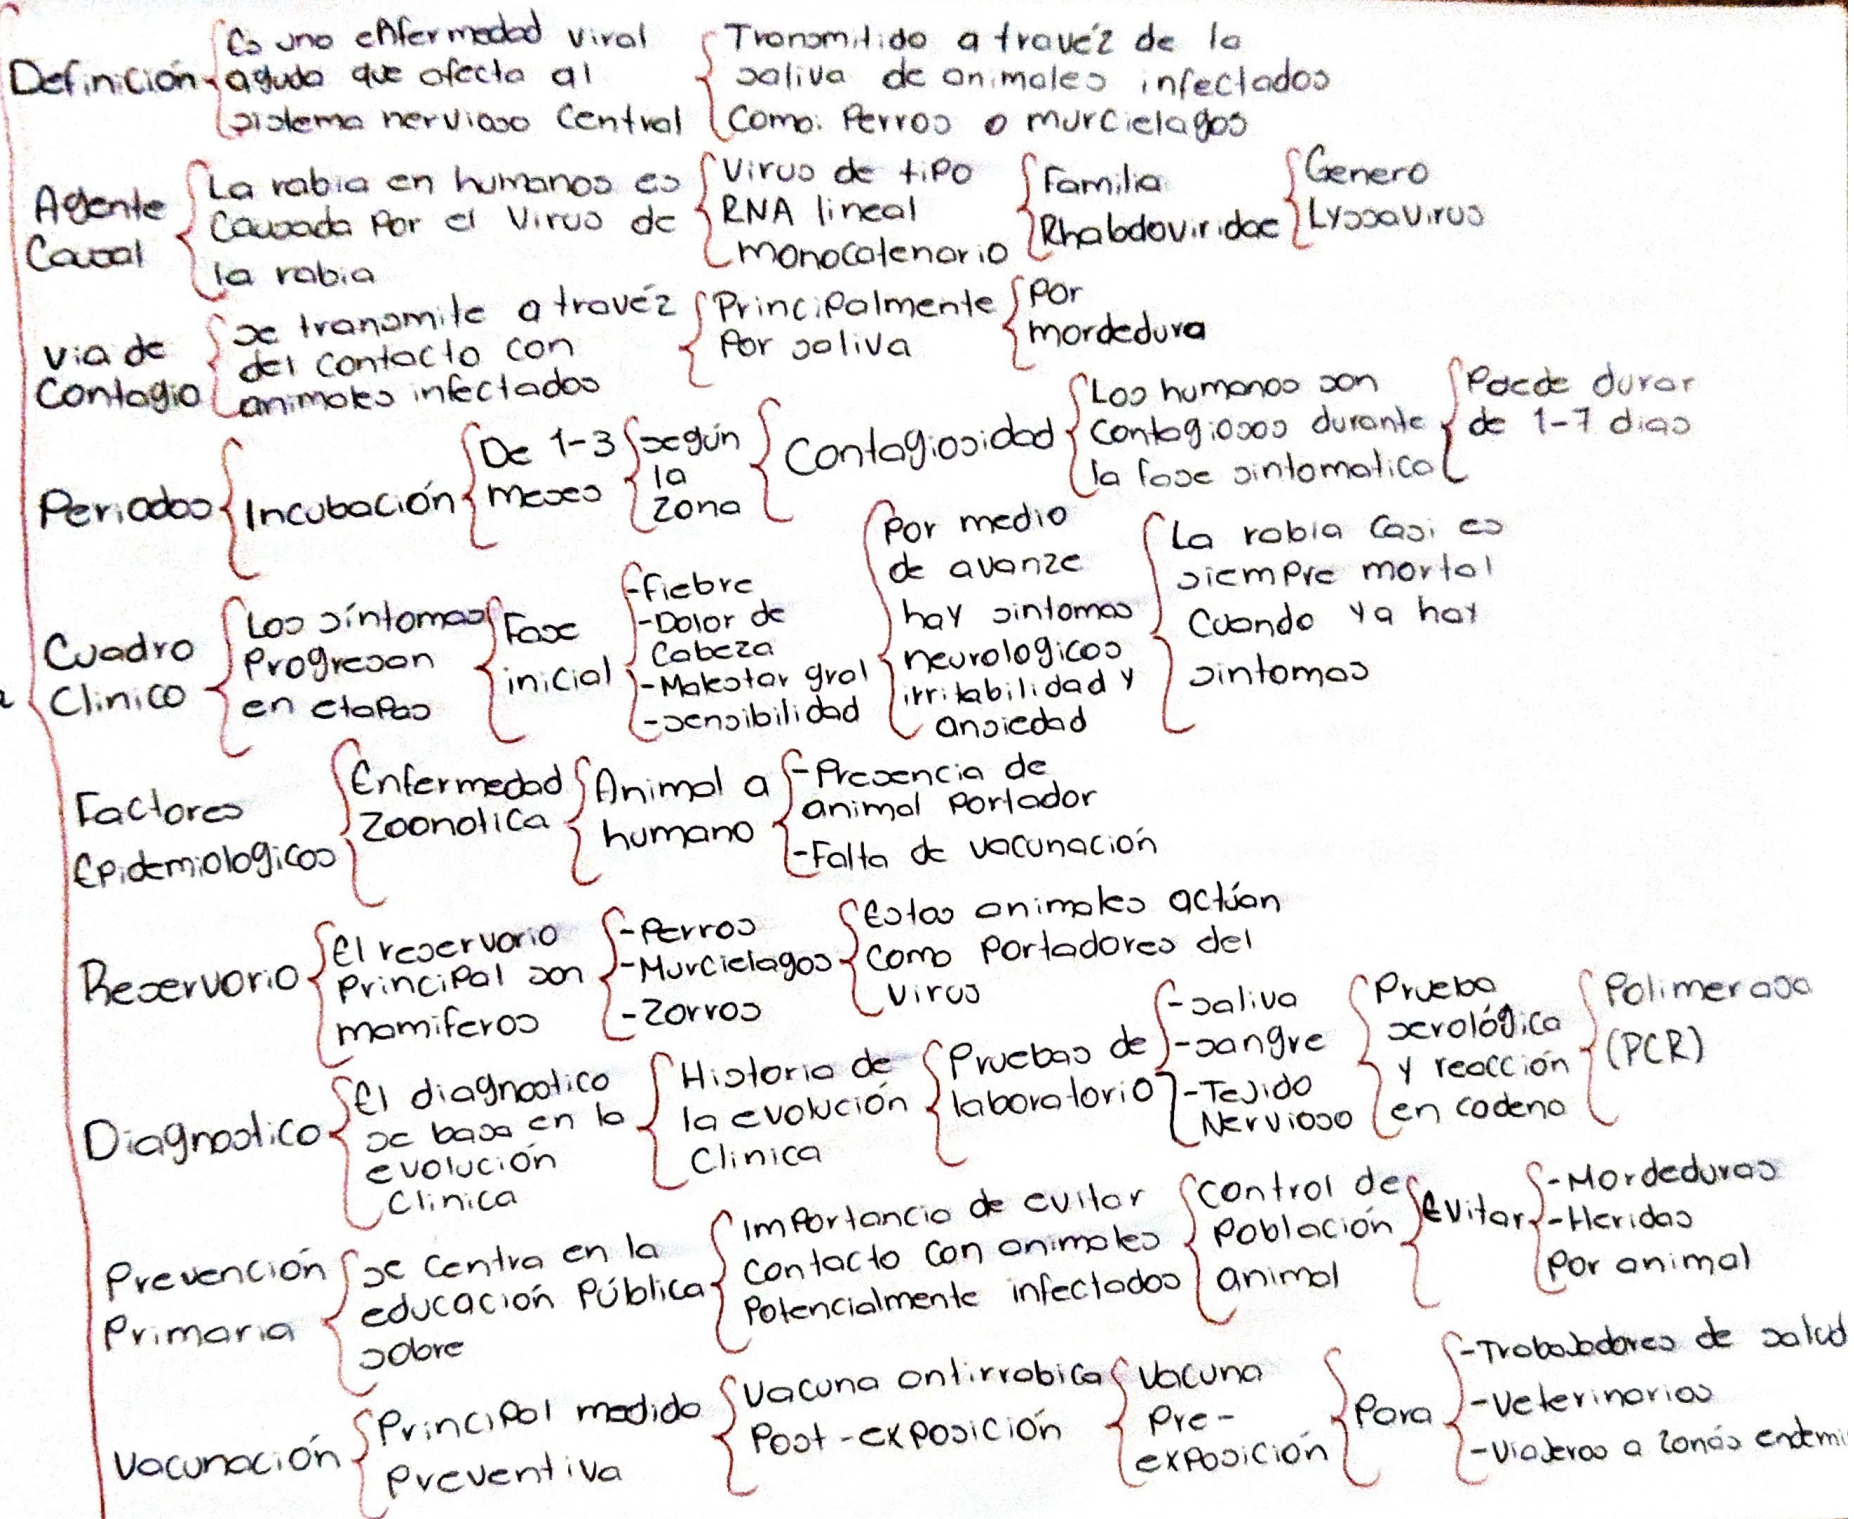 Definición
Es una enfermedad viral
aguda que afecta al
sistema nervioso Central
Transmitido a travéz de la
saliva de animales infectados
Como: Perros o murcielagos
Agente
Causal
La rabia en humanos es
Causada Por el Virus de
la rabia
Virus de tipo
RNA lineal
monocatenario
Familia
Rhabdoviridae
Genero
Lyssavirus
via de
Contagio
se transmite a travéz
del contacto con
animales infectados
Principalmente
Por saliva
Por
mordedura
Periodos
Incubación
De 1-3
meses
según
la
zona
Contagiosidad
Los humanos son
contagiosos durante
la fase sintomatica
Puede durar
de 1-7 dias
Cuadro
Clinico
Los síntomas
Progresan
en etapas
Fase
inicial
-fiebre
-Dolor de
Cabeza
-Malestar gral
-sensibilidad
Por medio
de avanze
hay sintomas
neurologicos
irritabilidad y
ansiedad
La rabia Casi es
siempre mortal
Cuando ya hay
sintomas
Factores
Epidemiologicos
Enfermedad
Zoonotica
Animal a
humano
-Presencia de
animal Portador
-Falta de vacunación
Reservorio
El reservorio
Principal son
mamiferos
-Perros
-Murcielagos
-Zorros
Estos animales actúan
como Portadores del
virus
Diagnostico
El diagnostico
se basa en la
evolución
Clinica
Historia de
la evolución
Clinica
Pruebas de
laboratorio
-saliva
-sangre
-Tejido
Nervioso
Prueba
serológica
y reacción
en cadena
Polimerasa
(PCR)
Prevención
Primaria
se centra en la
educación Pública
sobre
Importancia de evitar
contacto con animales
Potencialmente infectados
Control de
Población
animal
Evitar
-Mordeduras
-Heridas
Por animal
Vacunación
Principal medida
Preventiva
Vacuna antirrabica
Post-exposición
Vacuna
Pre-
exposición
Para
-Trabajadores de salud
-Veterinarios
-Viajeros a zonás endemi